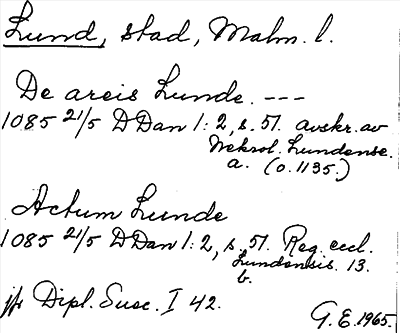 Lund, stad, Malm. l.
De areis Lunde. ---
1085 21/5 DDan 1:2, s. 51. avskr. av
Nekrol. Lundense.
a. (o. 1135.)
Actum Lunde
1085 21/5 DDan 1:2, s. 51. Reg. eccl.
Lundensis. 13.
b.
jfr Dipl. Suec. I 42.
G.E. 1965.